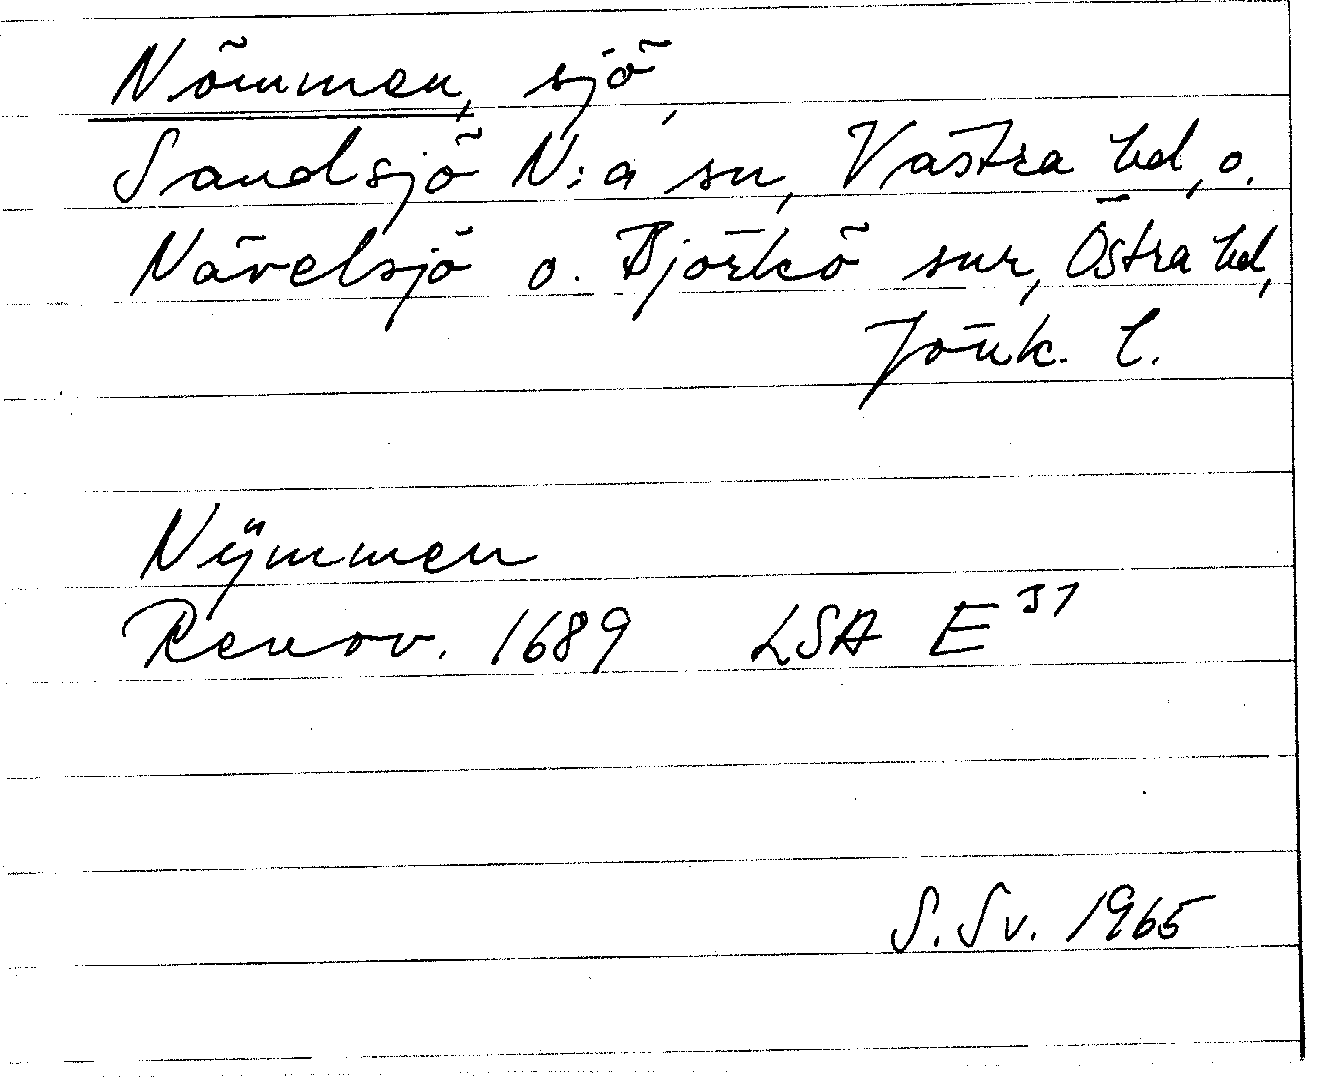 Nömmen, sjö,
Sandsjö N:a sn, Västra hd, o.
Nävelsjö o. Björkö snr, Östra hd,
Jönk. l.
Nÿmmen
Renov. 1689 LSA E 31
S. Sv. 1965